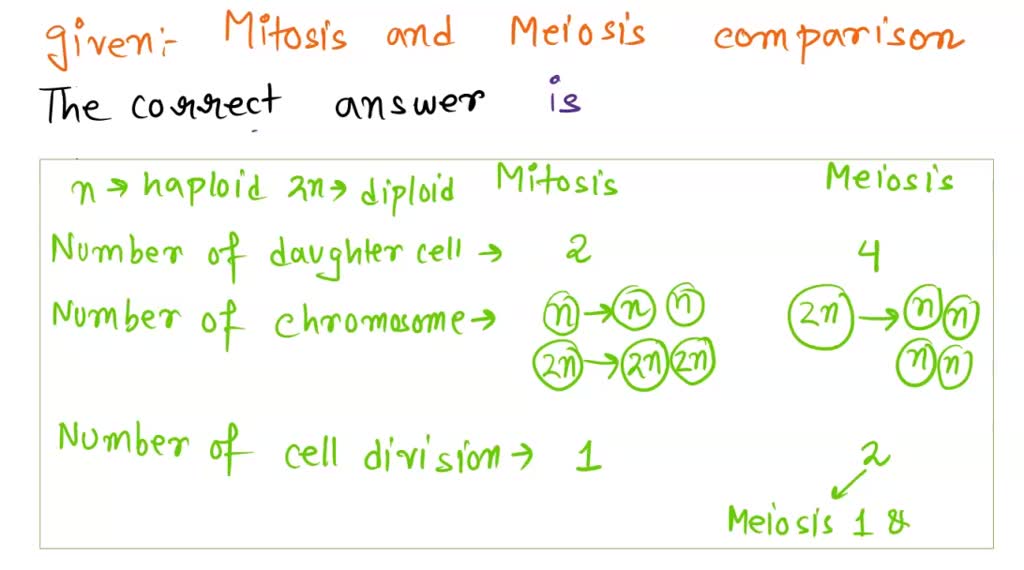 given:- Mitosis and Meiosis comparison
The correct answer is
n → haploid 2n → diploid Mitosis Meiosis
Number of daughter cell → 2 4
Number of chromosome → n → n n 2n → n n
2n → 2n 2n n n
Number of cell division → 1 2
Meiosis 1 &